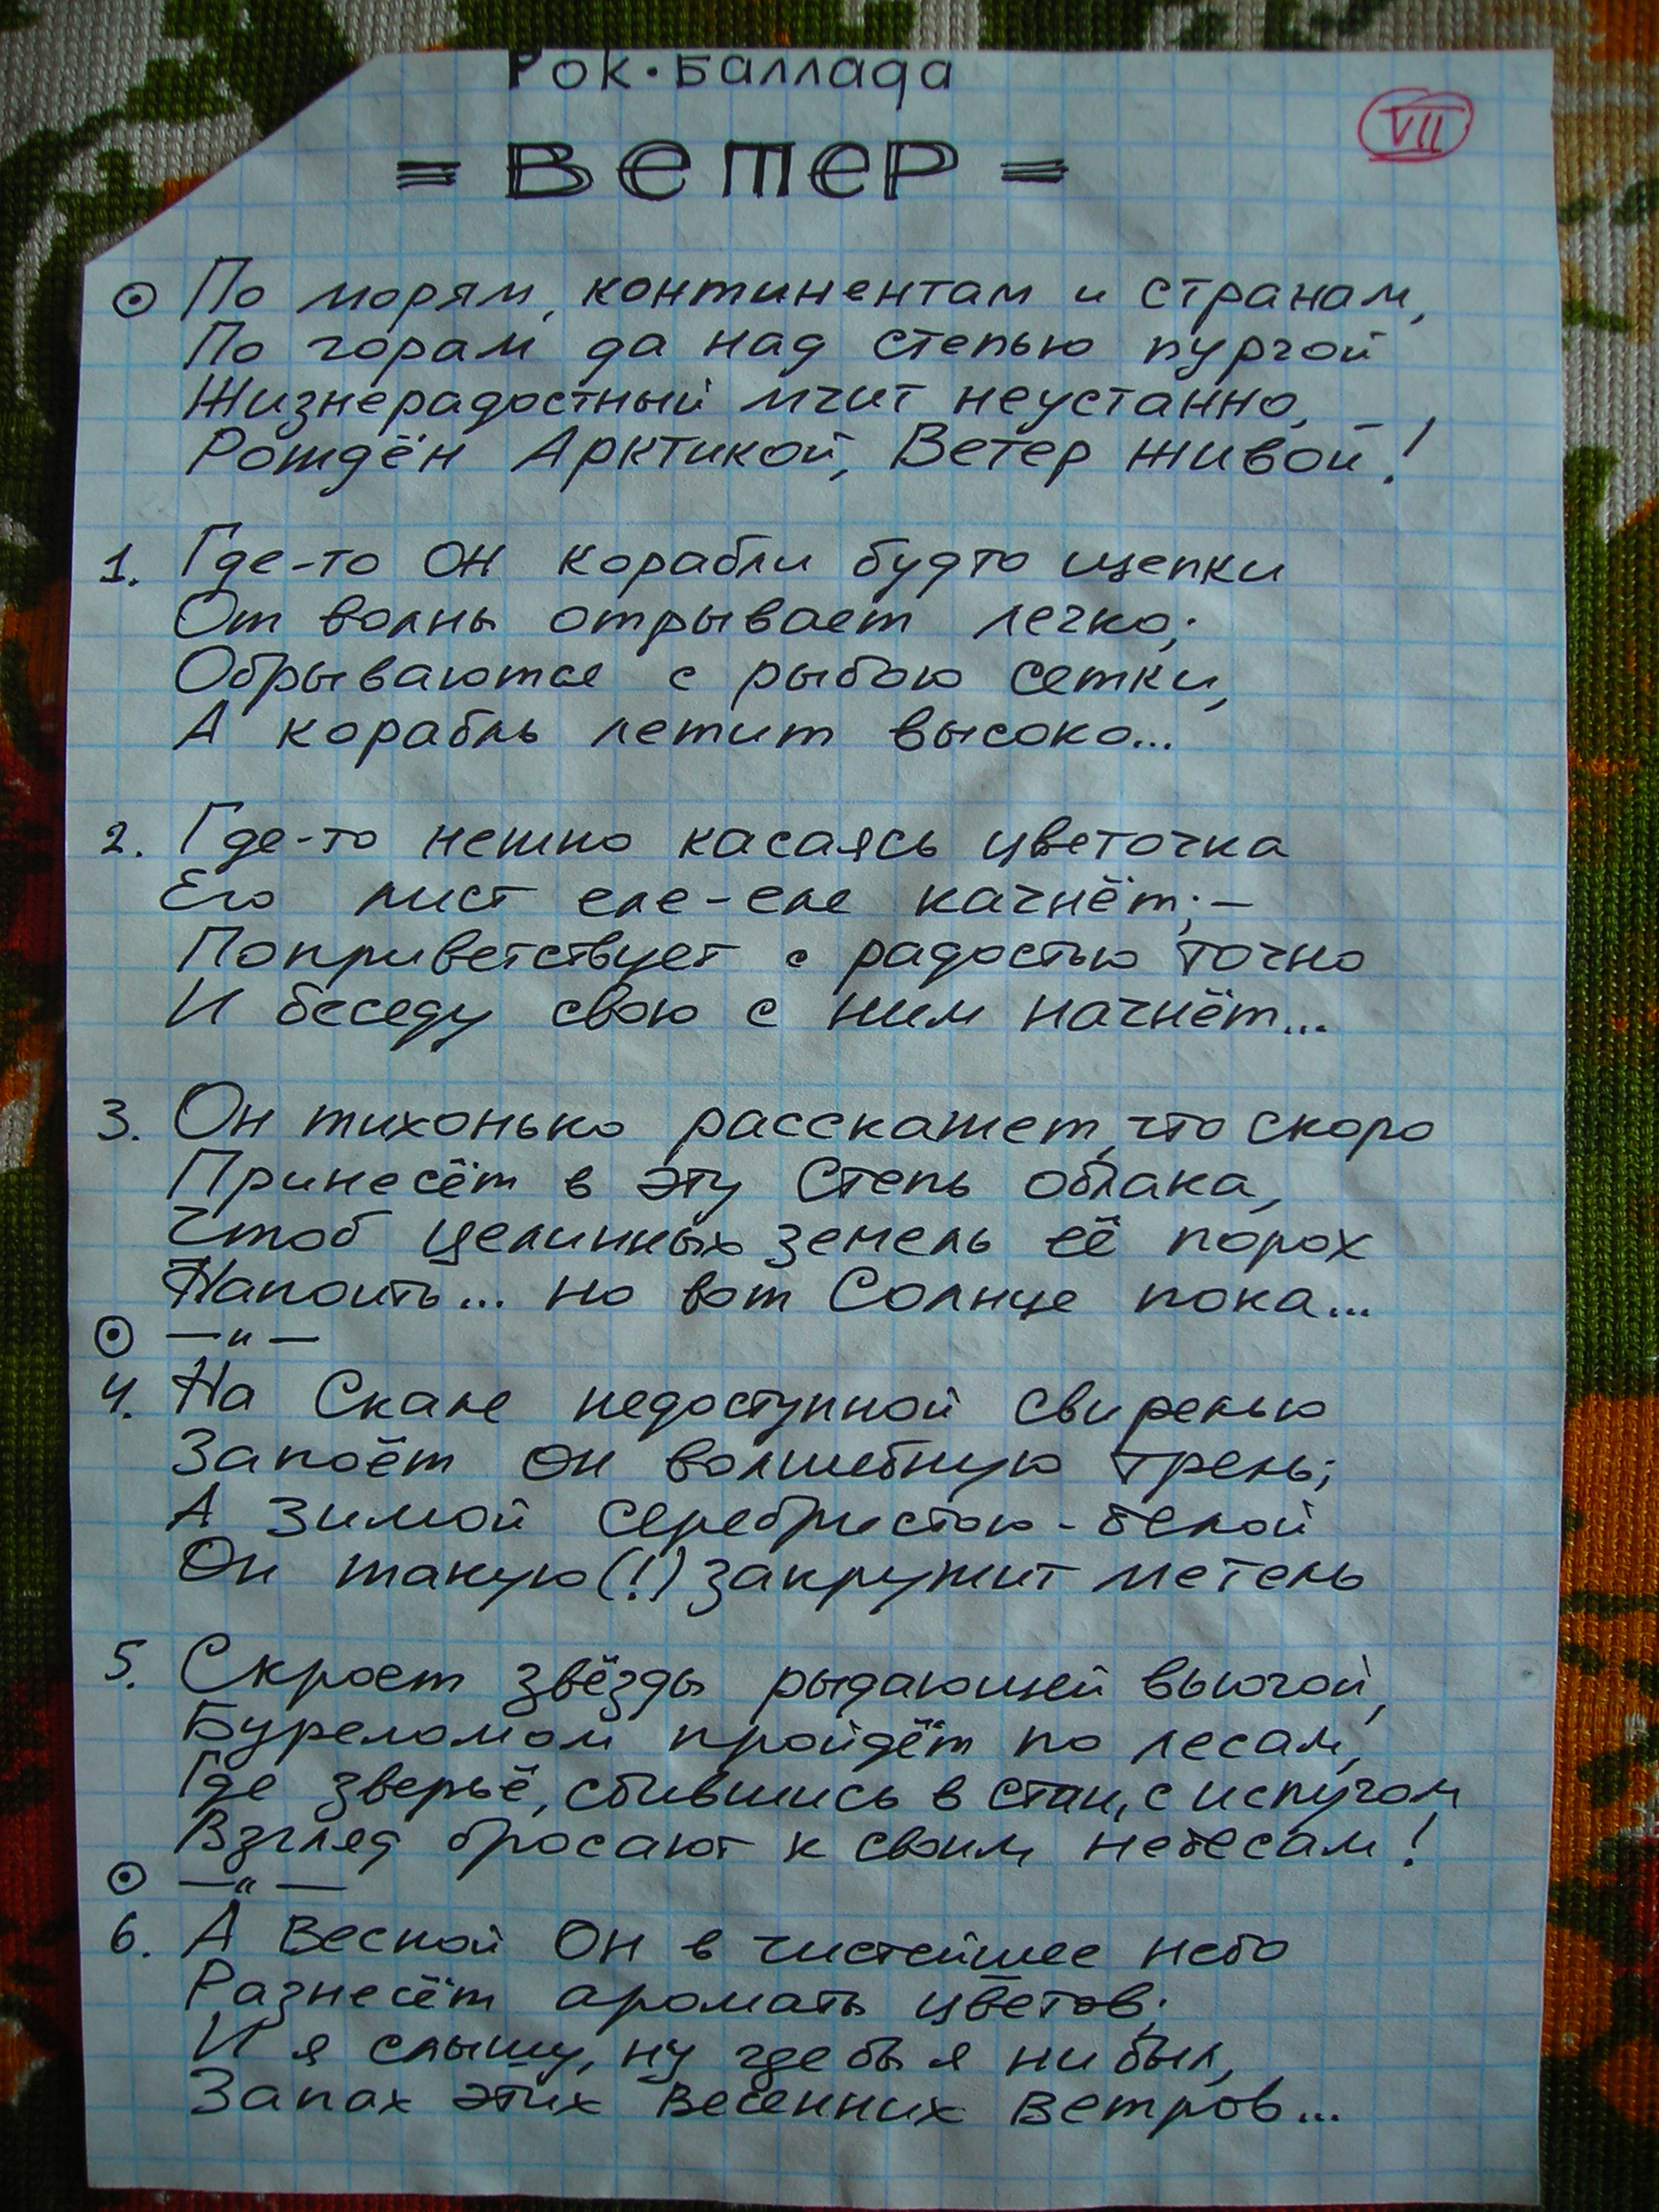 Рок-Баллада
= ВЕТЕР =
VII
⊙ По морям, континентам и странам,
По горам да над степью пургой
Жизнерадостный мчит неустанно,
Рождён Арктикой, Ветер живой!
1. Где-то ОН корабли будто щепки
От волны отрывает легко;
Обрываются с рыбою сетки,
А корабль летит высоко...
2. Где-то нежно касаясь цветочка
Его лист еле-еле качнёт; –
Поприветствует с радостью точно
И беседу свою с ним начнёт...
3. Он тихонько расскажет, что скоро
Принесёт в эту Степь облака,
Чтоб целинных земель её порох
Напоить... но вот Солнце пока...
⊙ —"—
4. На Скале недоступной свирелью
Запоёт Он волшебную трель;
А зимой серебристою-белой
Он такую(!) закружит метель
5. Скроет звёзды рыдающей вьюгой,
Буреломом пройдёт по лесам,
Где зверьё, сбившись в стаи, с испугом
Взгляд бросают к своим небесам!
⊙ —"—
6. А весной Он в чистейшее небо
Разнесёт ароматы цветов;
И я слышу, ну где бы я ни был,
Запах этих весенних ветров...